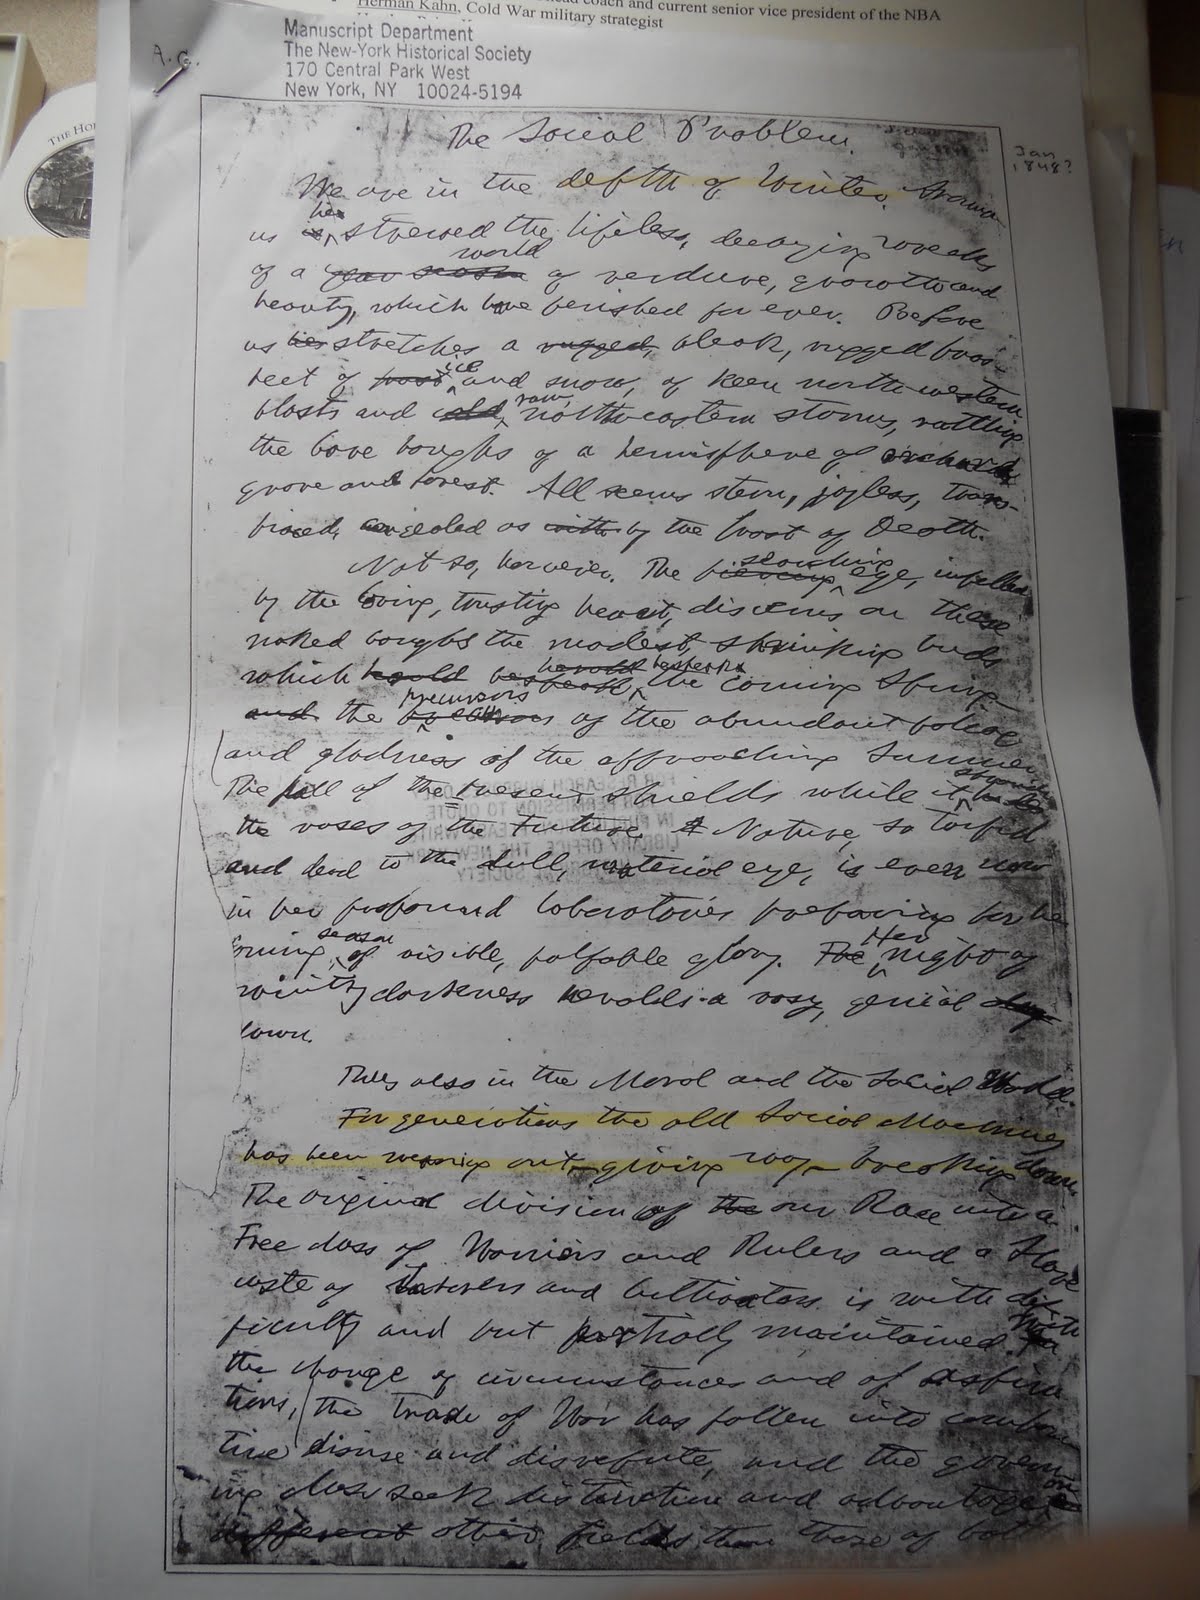 head coach and current senior vice president of the NBA
Herman Kahn, Cold War military strategist
Manuscript Department
The New-York Historical Society
170 Central Park West
New York, NY 10024-5194
A.G.
THE HO
Jan
1848?
The Social Problem.
We are in the depth of Winter. Around
us lies strewed the lifeless, decaying wrecks
of a year season world of verdure, growth and
beauty, which have perished for ever. Before
us lies stretches a rugged, bleak, rugged
of frost ice and snow, of keen northwestern
blasts and cold, raw, northeastern storms, rattling
the bare boughs of a hemisphere of orchard
grove and forest. All seems stern, joyless, trans-
fixed, congealed as with by the frost of Death.
Not so, however. The piercing searching eye, impelled
by the loving, trusting heart, discerns on these
naked boughs the modest, shrinking buds
which herald bespeak, herald bespeak the coming Spring
and the precursors of the abundant foliage
and gladness of the approaching Summer.
The fall of the present shields while it
the roses of the Future. Nature, so torpid
and dead to the dull, material eye, is even now
in her profound laboratories preparing for the
coming season of visible, palpable glory. The Her night of
wintry darkness heralds a rosy, genial day
dawn.
Thus also in the Moral and the Social World.
For generations the old Social Machinery
has been wearing out, giving way, breaking down.
The original division of the our Race into a
Free class of Warriors and Rulers and a Slave
caste of and Cultivators is with dif-
ficulty and but partially maintained. With
the change of circumstances and of aspira-
tions, the trade of War has fallen into compara-
tive disuse and disrepute, and the govern-
ing class seek distinction and advantage on
different other fields than those of batt